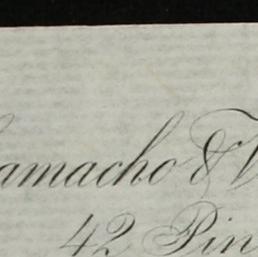 amacho &
42 Pin